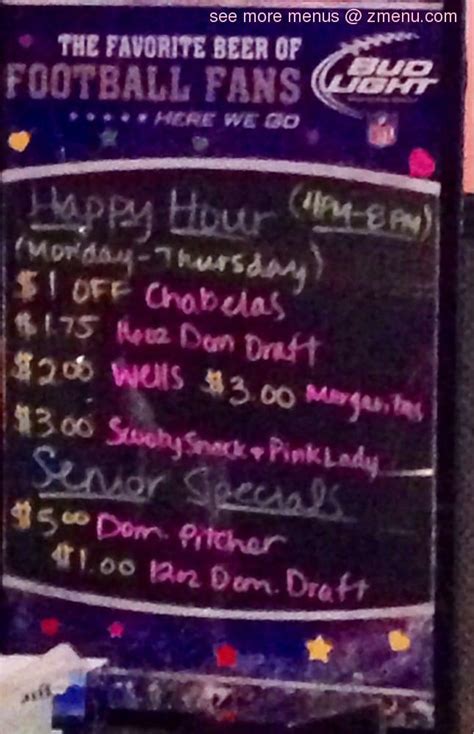 see more menus @ zmenu.com
THE FAVORITE BEER OF
FOOTBALL FANS
HERE WE GO
BUD
LIGHT
NFL
Happy Hour (4PM-8PM)
(Monday-Thursday)
$1 OFF Chabelas
$1.75 16oz Dom Draft
$2.00 Wells $3.00 Margaritas
$3.00 Scooby Snack + Pink Lady
Senior Specials
$5.00 Dom. Pitcher
$1.00 12oz Dom. Draft